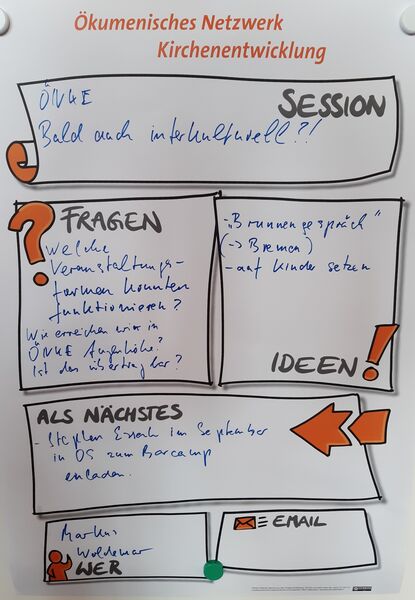 Ökumenisches Netzwerk
Kirchenentwicklung
SESSION
ÖNKE
Bald auch interkulturell?!
FRAGEN
Welche
Veranstaltungs-
formen könnten
funktionieren?
Wie erreichen wir in
ÖNKE Augenhöhe?
Ist das übertragbar?
- „Brunnengespräch"
(-> Bremen)
- auf Kinder setzen
IDEEN
ALS NÄCHSTES
- Stephen im September
in OS zum Barcamp
einladen.
Markus
Woldemar
WER
= EMAIL